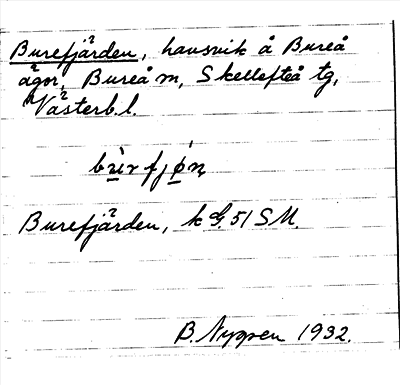 Burefjärden, havsvik å Bureå
ägor, Bureå m, Skellefteå tg,
Västerb.l.
bùrfjọ́n
Burefjärden, k G. 51 SM.
B. Nygren 1932.